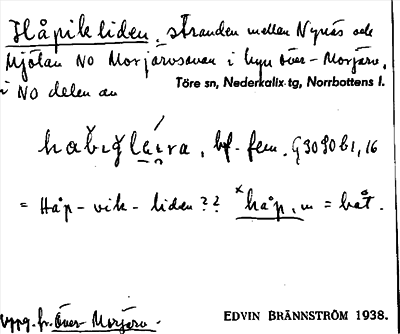 Håpikliden, stranden mellan Nynäs och
Mjölan NO Morjärvsavan i byn Över-Morjärv,
i NO delen av
Töre sn, Nederkalix tg, Norrbottens l.
bf. fem. G3090b1,16
= Håp-vik-liden?? *håp, m = båt.
uppg. fr. Över-Morjärv.
EDVIN BRÄNNSTRÖM 1938.